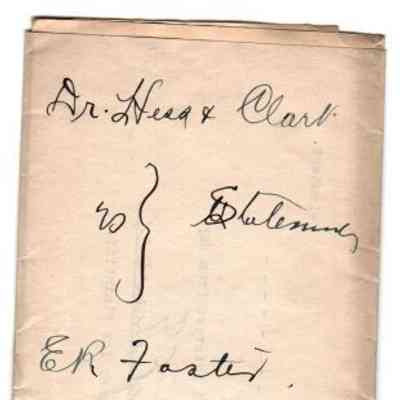 Dr. Hess & Clark
vs } Statement
E R Foster.